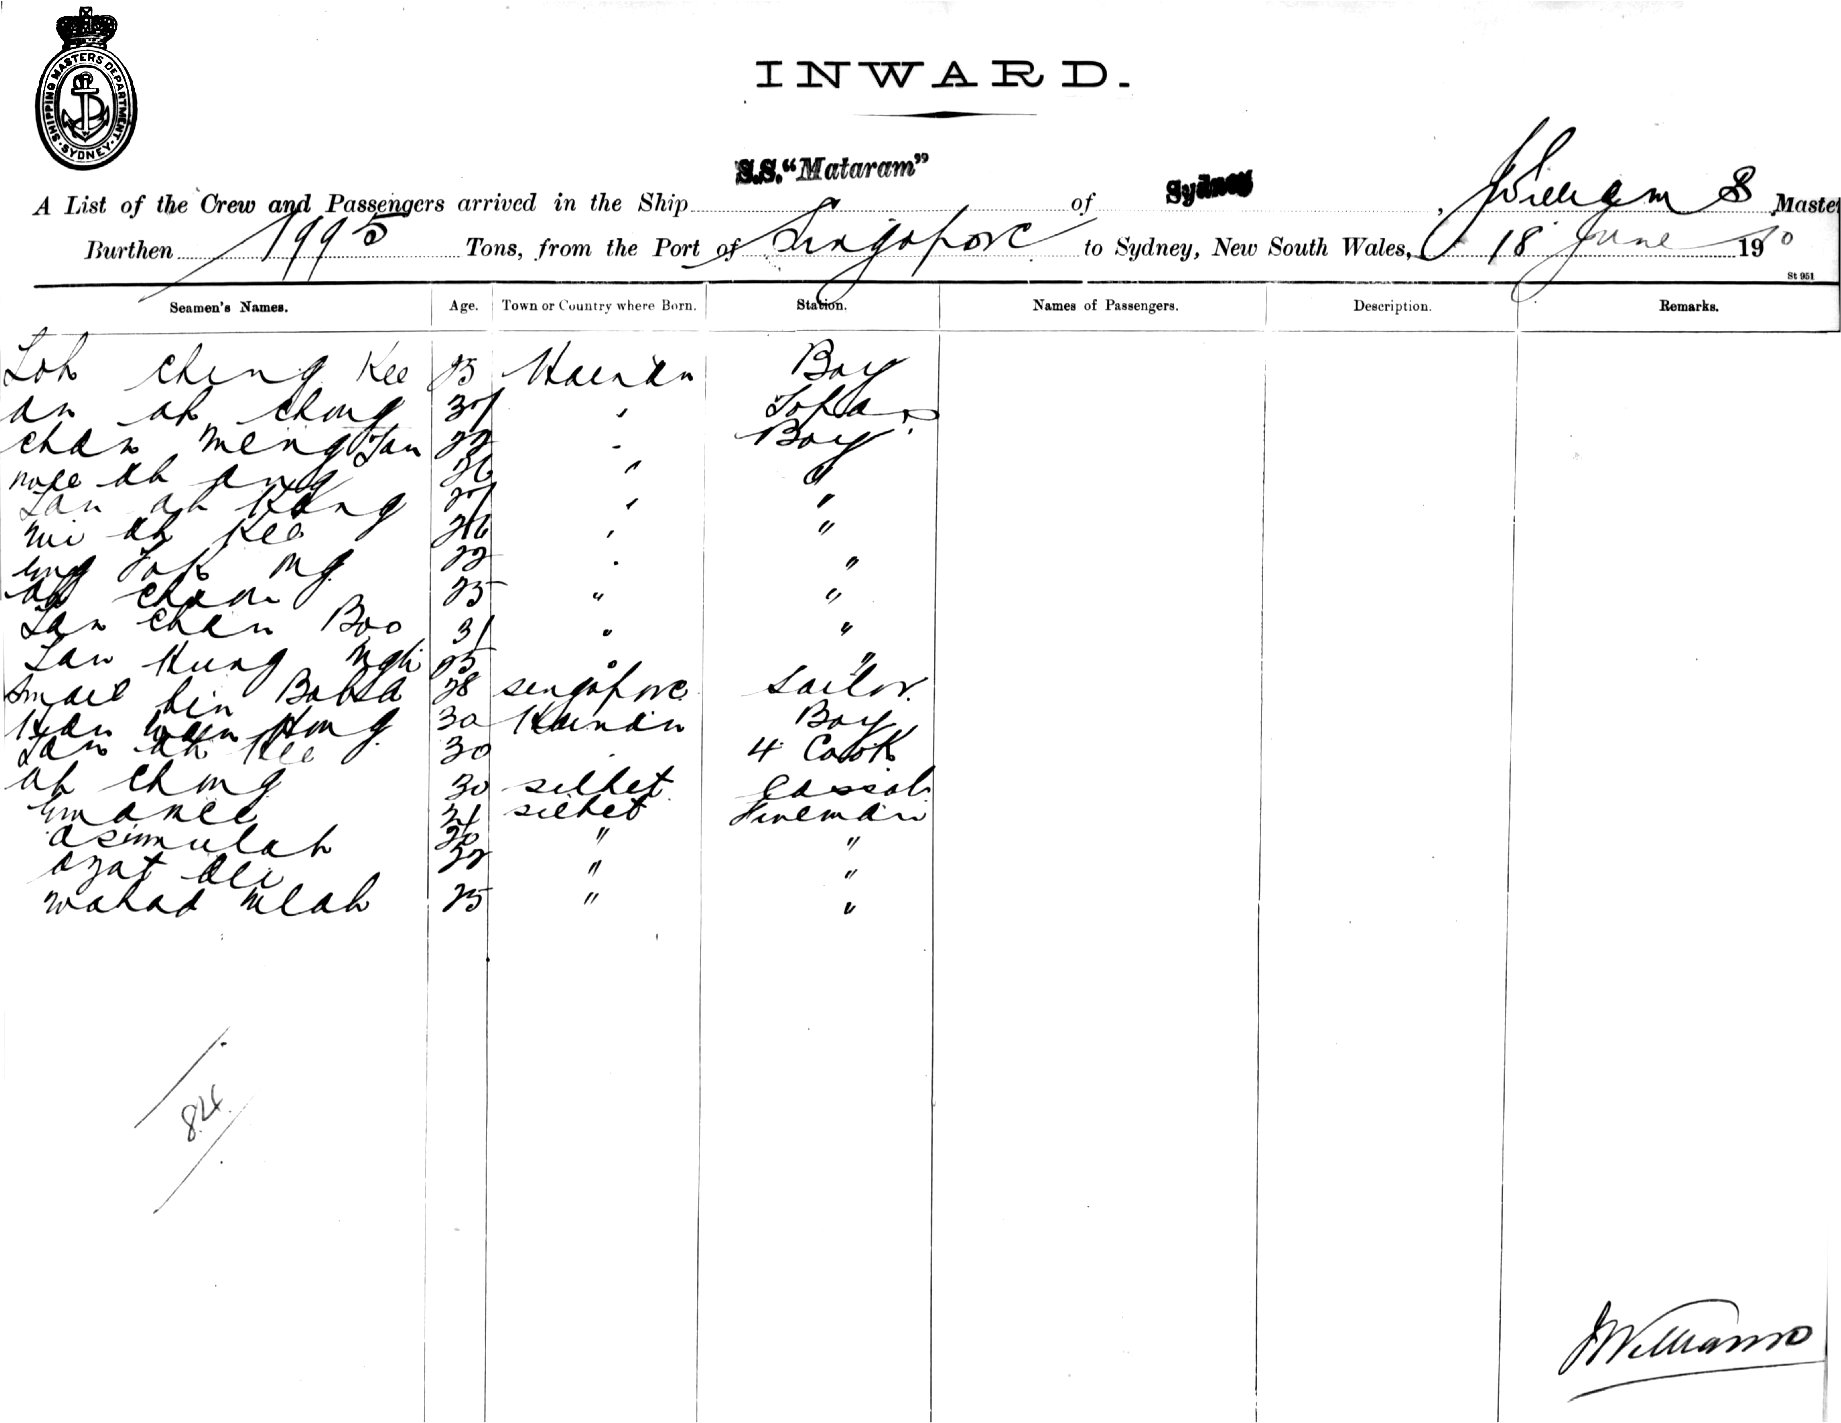 SHIPPING MASTERS DEPARTMENT
SYDNEY
INWARD.
S.S. "Mataram" Sydney
A List of the Crew and Passengers arrived in the Ship of , J Williams Master
Burthen 1995 Tons, from the Port of Singapore to Sydney, New South Wales, 18 June 1910
St 951
Seamen's Names. Age. Town or Country where Born. Station. Names of Passengers. Description. Remarks.
Loh Cheng Kee 25 Hainan Boy
an ah Chong 37 "
Chan Meng Jan 22 " Boy
ah ang 36 " "
Lan ah Kong 27 " "
ah Kee 26 " "
22 " "
25 " "
Lan Chan Boo 31 " "
Lan Kung 25 " "
Smail bin Babsa 28 Singapore Sailor.
30 Hainan Boy
Lan ah Kee 30 " 4 Cook
ah Chong 30 Silhet Cassab
31 Silhet Fireman
asimulah " "
azat ali 32 " "
wahad ulah 25 " "
84
J Williams